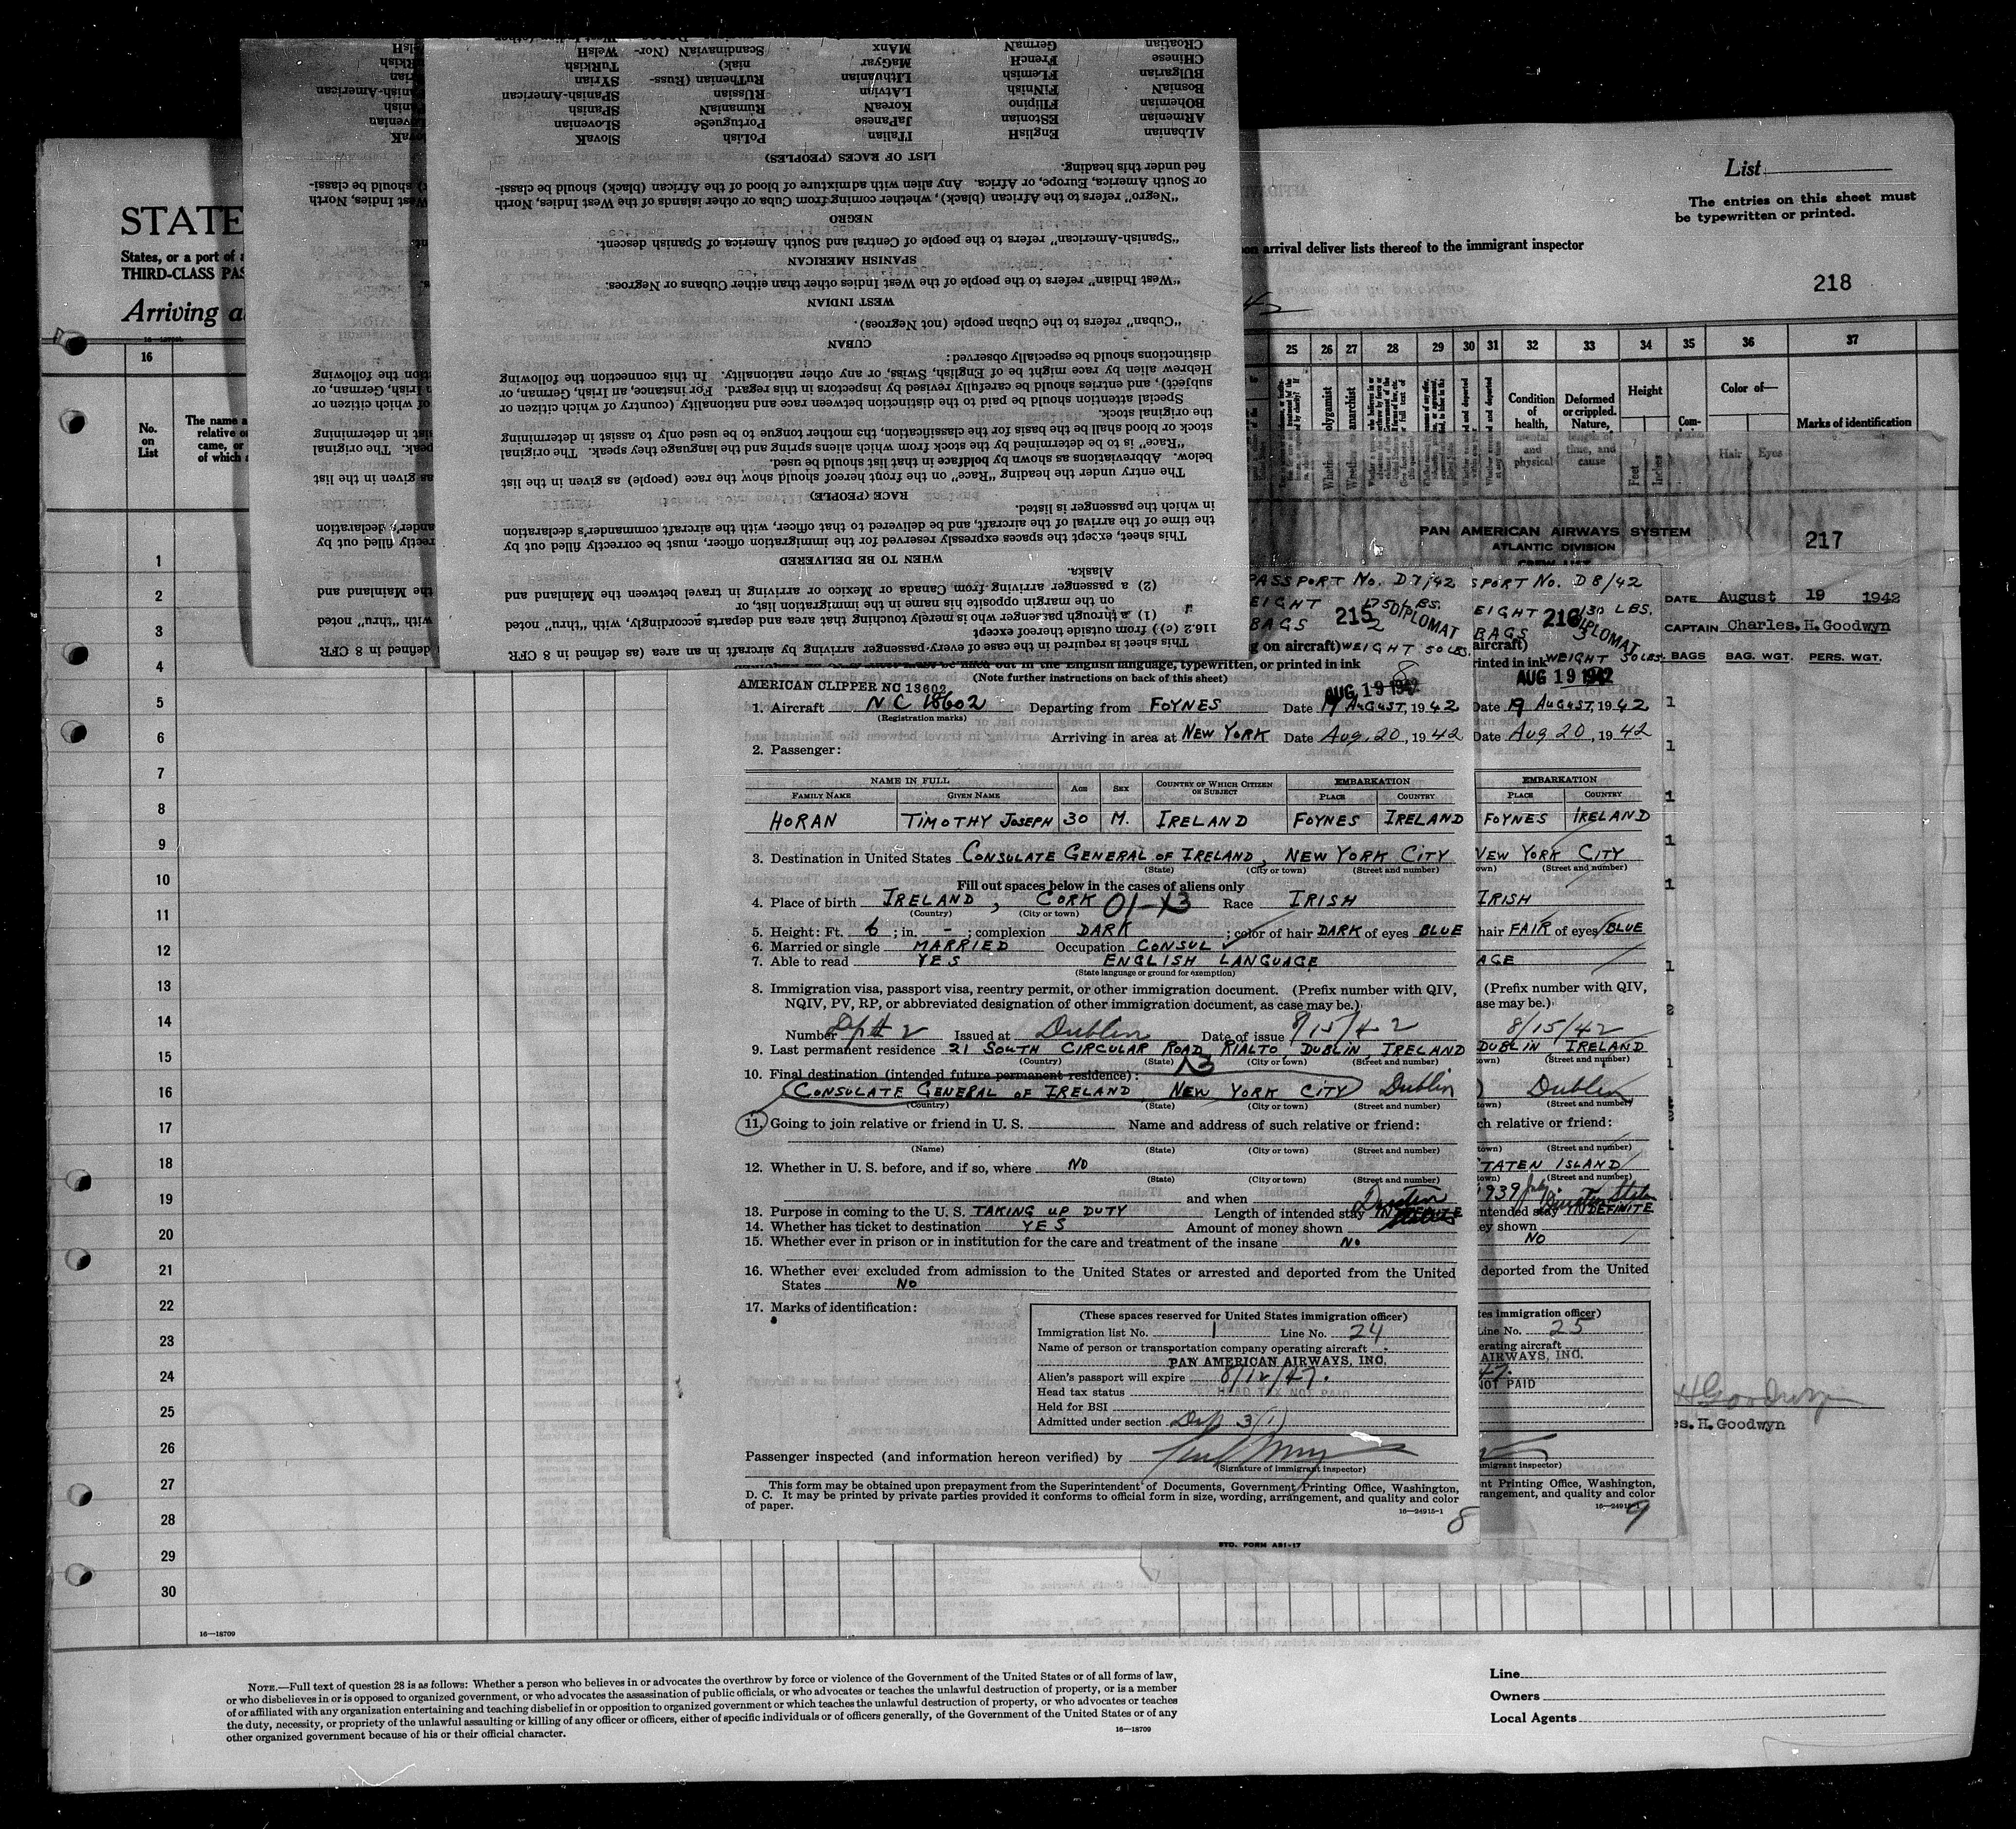 List
The entries on this sheet must
be typewritten or printed.
STATE
States, or a port of
THIRD-CLASS PAS
on arrival deliver lists thereof to the immigrant inspector
Arriving a
218
16
25 26 27 28 29 30 31 32 33 34 35 36 37
No.
on
List
The name a
relative o
came, or
of which a
Condition
of
health,
mental
and
physical
Deformed
or crippled.
Nature,
length of
time, and
cause
Height
Feet
Inches
Com-
Color of—
Hair Eyes
Marks of identification
1
2
3
4
5
6
7
8
9
10
11
12
13
14
15
16
17
18
19
20
21
22
23
24
25
26
27
28
29
30
16—18709
This sheet is required in the case of every passenger arriving by aircraft in an area (as defined in 8 CFR
116.2 (c)) from outside thereof except
(1) a through passenger who is merely touching that area and departs accordingly, with "thru" noted
on the margin opposite his name in the immigration list, or
(2) a passenger arriving from Canada or Mexico or arriving in travel between the Mainland and
Alaska.
WHEN TO BE DELIVERED
This sheet, except the spaces expressly reserved for the immigration officer, must be correctly filled out by
the time of the arrival of the aircraft, and be delivered to that officer, with the aircraft commander's declaration
in which the passenger is listed.
RACE (PEOPLE)
The entry under the heading "Race" on the front hereof should show the race (people) as given in the list
below. Abbreviations as shown by boldface in that list should be used.
"Race" is to be determined by the stock from which aliens spring and the language they speak. The original
stock or blood shall be the basis for the classification, the mother tongue to be used only to assist in determining
the original stock.
Special attention should be paid to the distinction between race and nationality (country of which citizen or
subject), and entries should be carefully revised by inspectors in this regard. For instance, an Irish, German, or
Hebrew alien by race might be of English, Swiss, or any other nationality. In this connection the following
distinctions should be especially observed:
CUBAN
"Cuban" refers to the Cuban people (not Negroes).
WEST INDIAN
"West Indian" refers to the people of the West Indies other than either Cubans or Negroes.
SPANISH AMERICAN
"Spanish-American" refers to the people of Central and South America of Spanish descent.
NEGRO
"Negro" refers to the African (black), whether coming from Cuba or other islands of the West Indies, North
or South America, Europe, or Africa. Any alien with admixture of blood of the African (black) should be classi-
fied under this heading.
LIST OF RACES (PEOPLES)
ALbanian EnglisH ITalian PoLish SlovaK
ARmenian EStonian JaPanese PortuguESe SLovenian
BOhemian FIlipino KoreaN RumaniaN SPaniSh
BosniaN FiNniSh LAtvian RUssian SPanish-American
BUlgarian FLemish LIthuanian RuThenian (Russ- SYrian
CHinese FrencH MaGyar niak) TuRkish
CRoatian GermaN MAnx ScandinaviaN (Nor- WelsH
PAN AMERICAN AIRWAYS SYSTEM
ATLANTIC DIVISION
CREW LIST
217
DATE August 19 1942
CAPTAIN Charles. H. Goodwyn
BAGS BAG. WGT. PERS. WGT.
H Goodwyn
es. H. Goodwyn
STD. FORM AD1-17
PASSPORT No. D7/42
EIGHT 175 LBS.
215 DIPLOMAT
BAGS 2
g on aircraft) WEIGHT 50 LBS.
out in the English language, typewritten, or printed in ink
(Note further instructions on back of this sheet)
8
AMERICAN CLIPPER NC 18602
AUG 19 1942
1. Aircraft NC 18602 Departing from FOYNES Date 19 AUGUST, 1942
(Registration marks)
Arriving in area at NEW YORK Date Aug. 20, 1942
2. Passenger:
NAME IN FULL AGE SEX COUNTRY OF WHICH CITIZEN OR SUBJECT EMBARKATION
FAMILY NAME GIVEN NAME PLACE COUNTRY
HORAN TIMOTHY JOSEPH 30 M. IRELAND FOYNES IRELAND
3. Destination in United States CONSULATE GENERAL OF IRELAND, NEW YORK CITY
(State) (City or town) (Street and number)
Fill out spaces below in the cases of aliens only
4. Place of birth IRELAND, CORK 01-X3 Race IRISH
(Country) (City or town)
5. Height: Ft. 6; in. -; complexion DARK; color of hair DARK of eyes BLUE
6. Married or single MARRIED Occupation CONSUL
7. Able to read YES ENGLISH LANGUAGE
(State language or ground for exemption)
8. Immigration visa, passport visa, reentry permit, or other immigration document. (Prefix number with QIV,
NQIV, PV, RP, or abbreviated designation of other immigration document, as case may be.)
Number Dpl# 2 Issued at Dublin Date of issue 8/15/42
9. Last permanent residence 21 SOUTH CIRCULAR ROAD, RIALTO, DUBLIN, IRELAND
(Country) (State) (City or town) (Street and number)
10. Final destination (intended future permanent residence):
CONSULATE GENERAL OF IRELAND NEW YORK CITY Dublin
(Country) (State) (City or town) (Street and number)
11. Going to join relative or friend in U. S. Name and address of such relative or friend:
(Name) (State) (City or town) (Street and number)
12. Whether in U. S. before, and if so, where NO
(State) (City or town) (Street and number)
and when
13. Purpose in coming to the U. S. TAKING UP DUTY Length of intended stay INDEFINITE
14. Whether has ticket to destination YES Amount of money shown
15. Whether ever in prison or in institution for the care and treatment of the insane NO
16. Whether ever excluded from admission to the United States or arrested and deported from the United
States NO
17. Marks of identification:
(These spaces reserved for United States immigration officer)
Immigration list No. 1 Line No. 24
Name of person or transportation company operating aircraft
PAN AMERICAN AIRWAYS, INC.
Alien's passport will expire 8/12/47.
Head tax status HEAD TAX NOT PAID
Held for BSI
Admitted under section Dip 3(1)
Passenger inspected (and information hereon verified) by
(Signature of immigrant inspector)
This form may be obtained upon prepayment from the Superintendent of Documents, Government Printing Office, Washington,
D. C. It may be printed by private parties provided it conforms to official form in size, wording, arrangement, and quality and color
of paper.
16—24915-1
8
SPORT No. D8/42
EIGHT 130 LBS.
216 DIPLOMAT
BAGS 3
aircraft)
rinted in ink WEIGHT 50 LBS.
AUG 19 1942
Date 19 AUGUST, 1942
Date Aug 20, 1942
EMBARKATION
PLACE COUNTRY
FOYNES IRELAND
NEW YORK CITY
own) (Street and number)
IRISH
hair FAIR of eyes BLUE
AGE
(Prefix number with QIV,
ase may be.)
8/15/42
DUBLIN IRELAND
own) (Street and number)
Dublin
own) (Street and number)
ch relative or friend:
own) (Street and number)
TATEN ISLAND
own) (Street and number)
1939 July.
ntended stay INDEFINITE
ey shown
NO
deported from the United
tes immigration officer)
Line No. 25
erating aircraft
AIRWAYS, INC.
47.
NOT PAID
mmigrant inspector)
nt Printing Office, Washington,
rangement, and quality and color
16—24915-1
9
NOTE.—Full text of question 28 is as follows: Whether a person who believes in or advocates the overthrow by force or violence of the Government of the United States or of all forms of law,
or who disbelieves in or is opposed to organized government, or who advocates the assassination of public officials, or who advocates or teaches the unlawful destruction of property, or is a member
of or affiliated with any organization entertaining and teaching disbelief in or opposition to organized government or which teaches the unlawful destruction of property, or who advocates or teaches
the duty, necessity, or propriety of the unlawful assaulting or killing of any officer or officers, either of specific individuals or of officers generally, of the Government of the United States or of any
other organized government because of his or their official character.
16—18709
Line
Owners
Local Agents